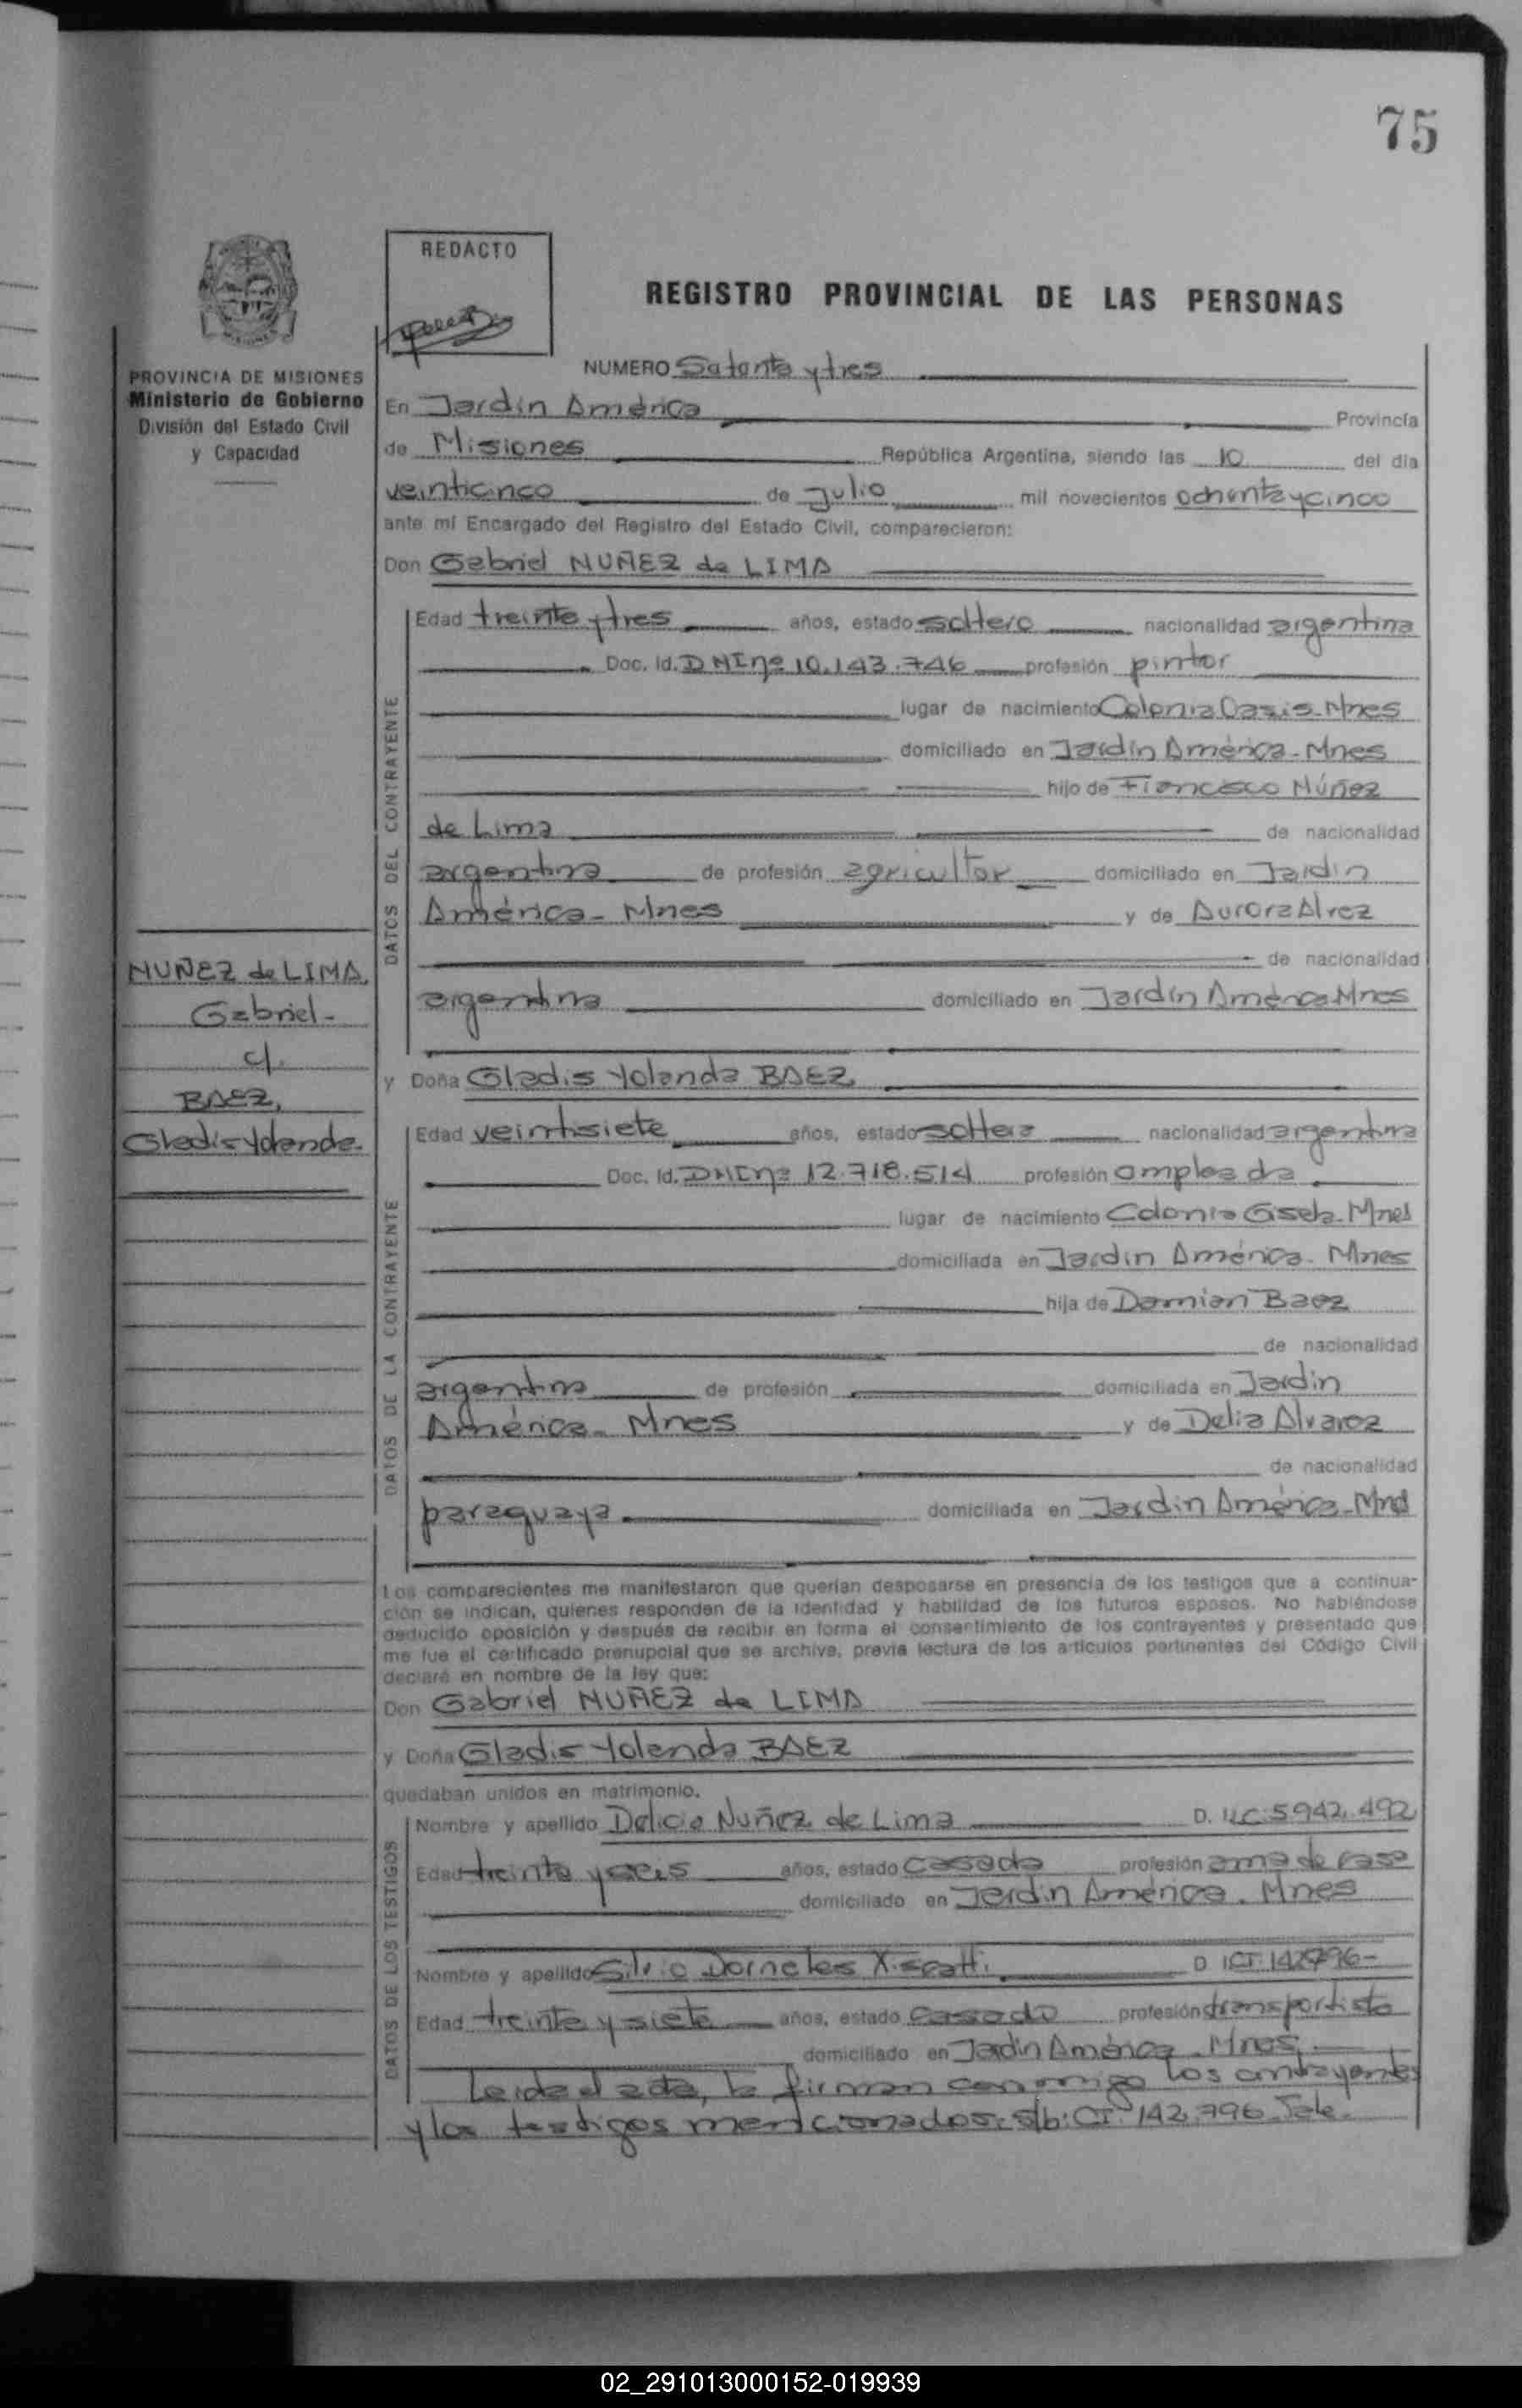 75
REDACTO
REGISTRO PROVINCIAL DE LAS PERSONAS
PROVINCIA DE MISIONES
Ministerio de Gobierno
División del Estado Civil
y Capacidad
NUMERO Setenta y tres
En Jardín América Provincia
de Misiones República Argentina, siendo las 10 del día
veinticinco de julio mil novecientos ochenta y cinco
ante mí Encargado del Registro del Estado Civil, comparecieron:
Don Gabriel NUÑEZ de LIMA
DATOS DEL CONTRAYENTE
Edad treinta y tres años, estado soltero nacionalidad argentina
Doc. Id. DNI nº 10.143.746 profesión pintor
lugar de nacimiento Colonia Oasis-Mnes
domiciliado en Jardín América-Mnes
hijo de Francisco Núñez
de Lima de nacionalidad
argentina de profesión agricultor domiciliado en Jardín
América-Mnes y de Aurora Alvez
de nacionalidad
argentina domiciliado en Jardín América Mnes
NUÑEZ de LIMA,
Gabriel-
c/.
BAEZ,
Gladis Yolanda-
y Doña Gladis Yolanda BAEZ
DATOS DE LA CONTRAYENTE
Edad veintisiete años, estado soltera nacionalidad argentina
Doc. Id. DNI nº 12.718.514 profesión empleada
lugar de nacimiento Colonia Gisela-Mnes
domiciliada en Jardín América-Mnes
hija de Damian Baez
de nacionalidad
argentina de profesión domiciliada en Jardín
América-Mnes y de Delia Alvarez
de nacionalidad
paraguaya domiciliada en Jardín América-Mnes
Los comparecientes me manifestaron que querían desposarse en presencia de los testigos que a continua-
ción se indican, quienes responden de la identidad y habilidad de los futuros esposos. No habiéndose
deducido oposición y después de recibir en forma el consentimiento de los contrayentes y presentado que
me fue el certificado prenupcial que se archiva, previa lectura de los artículos pertinentes del Código Civil
declaré en nombre de la ley que:
Don Gabriel NUÑEZ de LIMA
y Doña Gladis Yolanda BAEZ
quedaban unidos en matrimonio.
DATOS DE LOS TESTIGOS
Nombre y apellido Delicia Nuñez de Lima D. I LC: 5.942.492
Edad treinta y seis años, estado casada profesión ama de casa
domiciliado en Jardín América. Mnes
Nombre y apellido Silvio Dorneles D. I CI: 142796-
Edad treinta y siete años, estado casado profesión transportista
domiciliado en Jardín América-Mnes.
Leida el acta, la firman conmigo los contrayentes
y los testigos mencionados: s/b: CI: 142.796. Vale.
02_291013000152-019939